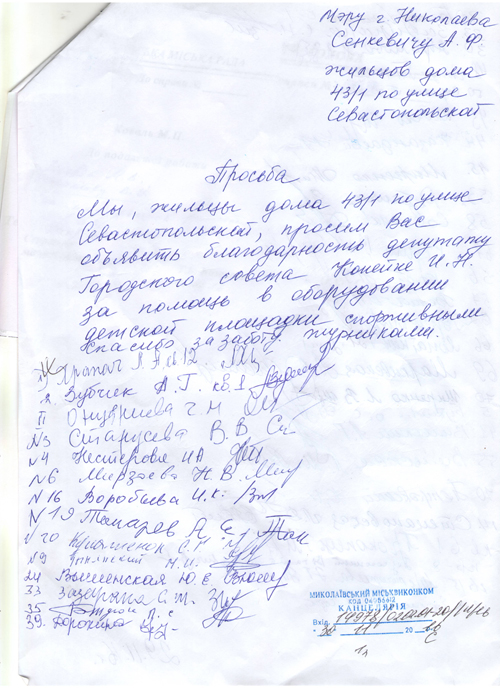 Мэру г Николаева
Сенкевичу А. Ф.
жильцов дома
43/1 по улице
Севастопольской
Просьба
Мы, жильцы дома 43/1 по улице
Севастопольской, просим Вас
объявить благодарность депутату
Городского совета Копейке И. Н.
за помощь в оборудовании
детской площадки спортивными
спасибо за заботу журниками.
12.
2. Зубчек А. Г. кв. 1
II
N3 Старусева В. В
N4 Нестерова НА
N6 Мирзаева Н. В.
N16 Воробьева И. К.
N19 Токарев А. Е.
N20
N9
24 Вышенская Ю. Е.
33 С. М.
35
39. Дорохина
МИКОЛАЇВСЬКИЙ МІСЬКВИКОНКОМ
КОД 04056612
КАНЦЕЛЯРІЯ
Вхід. 14978/02.02.01-20/14/16
" 30 " 11 20 16
1л